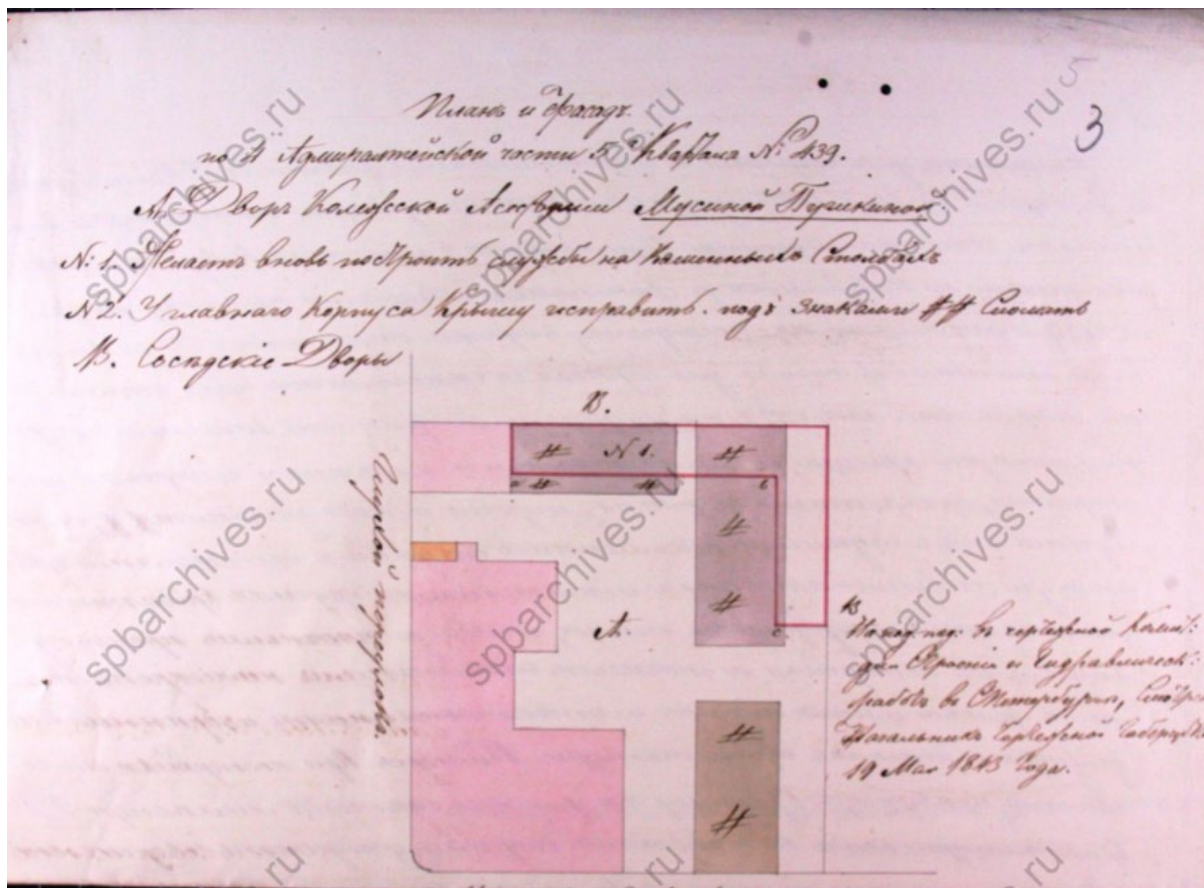 Планъ и Фасадъ.
3
Адмиралтейской части 5 Квартала № 439.
А. Дворъ Колежской Асесорши Мусиной Пушкиной
N: 1. Желаетъ вновь построить службы на каменныхъ Столбахъ
N 2. У главнаго Корпуса Крышу исправить. подъ знаками # # Сломать
В. Соседские Дворы
В.
N 1.
a
b
c
А.
В
Глухой переулокъ.
въ чертежной
и Гидравлическ:
работъ въ СПетербурге,
Начальникъ Чертежной
19 Мая 1843 Года.
spbarchives.ru